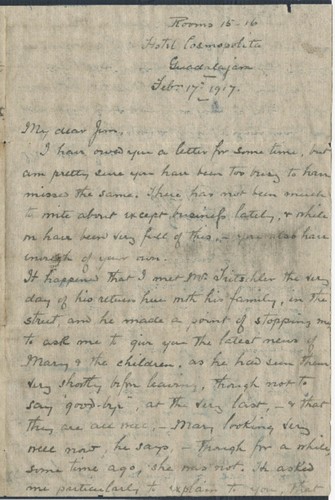 Rooms 15-16
Hotel Cosmopolita
Guadalajara
Feb. 17th 1917.
My dear Jim,
I have owed you a letter for some time, but
am pretty sure you have been too busy to have
missed the same. There has not been much
to write about except business lately, & while
we have been very full of this, - you also have
enough of your own.
It happened that I met Mr. Fritschler the very
day of his return here with his family, in the
street and he made a point of stopping me
to ask me to give you the latest news of
Mary & the children, as he had seen them
very shortly before leaving, though not to
say "good-bye", at the very last, - & that
they are all well, - Mary looking very
well now, he says, - though for a while
some time ago, she was not. He asked
me particularly to explain to you, that